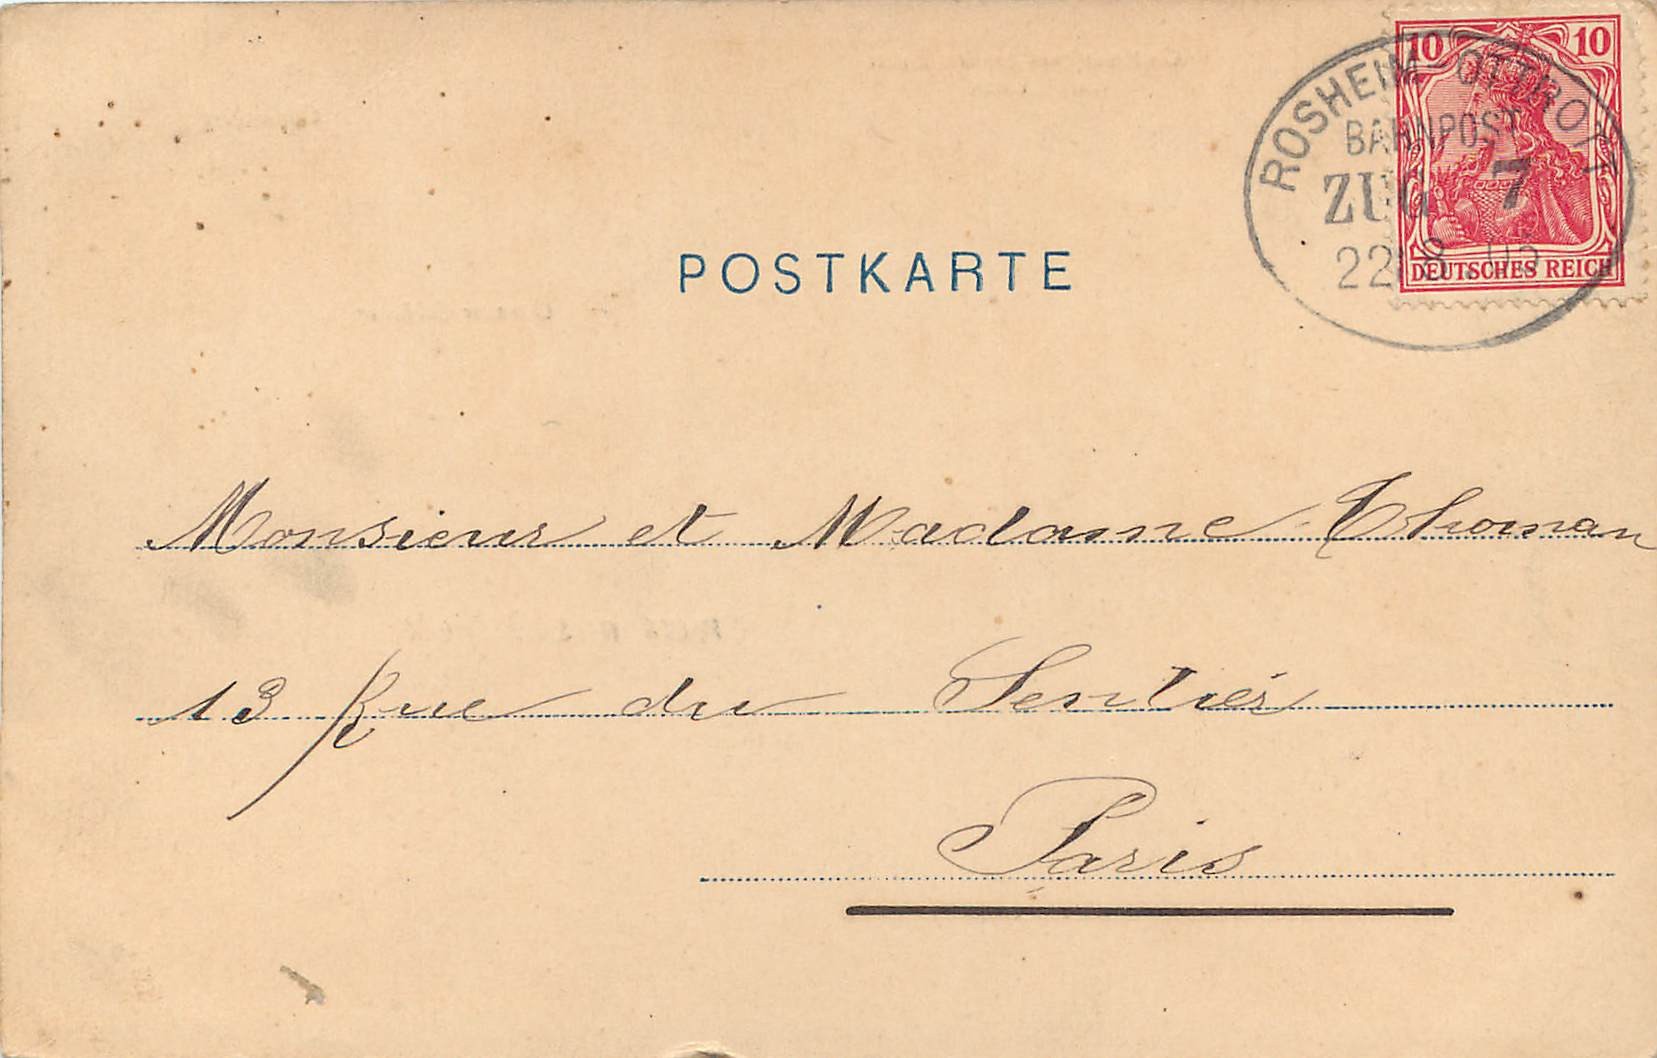 10 10
ROSHEIM-OTTROTT
BAHNPOST
ZUG 7
22 8 05
DEUTSCHES REICH
POSTKARTE
Monsieur et Madame Thoman
13 Rue du Sentier
Paris